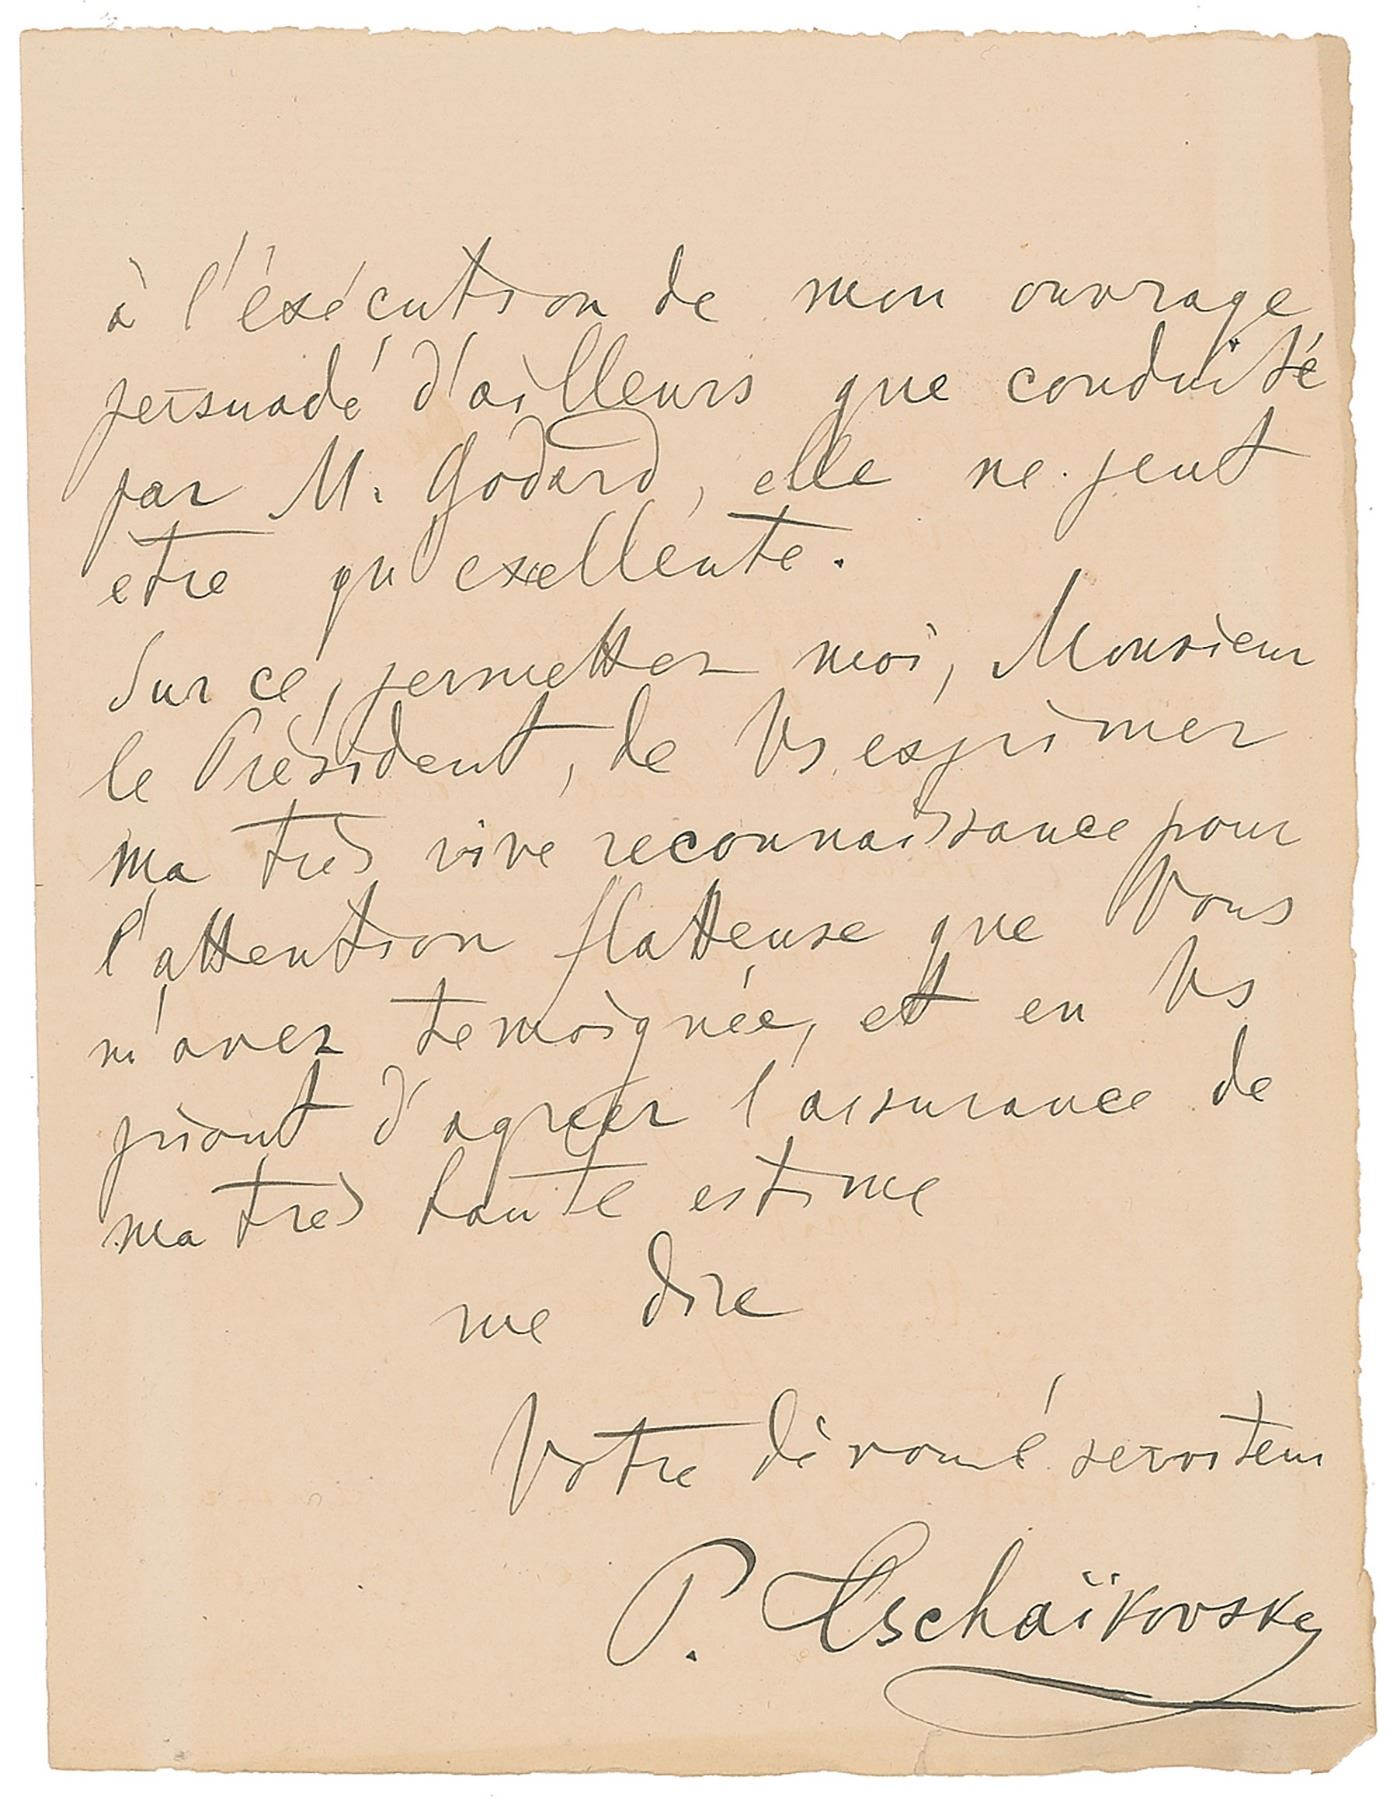 à l'éxécution de mon ouvrage
persuadé d'ailleurs que conduite
par M. Godard, elle ne peut
etre qu'exellente.
Sur ce, permettez moi, Monsieur
le Président, de Vs exprimer
ma très vive reconnaissance pour
l'attention flatteuse que Vous
m'avez temoignée, et en Vs
priant d'agréer l'assurance de
ma très haute estime
me dire
Votre dévoué serviteur
P. Tschaïkovsky